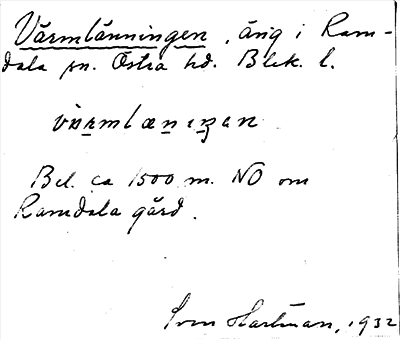 Värmlänningen, äng i Ram-
dala sn. Östra hd. Blek. l.
värmlæniŋan
Bel. ca 1500 m. NO om
Ramdala gård.
Sven Hartman, 1932